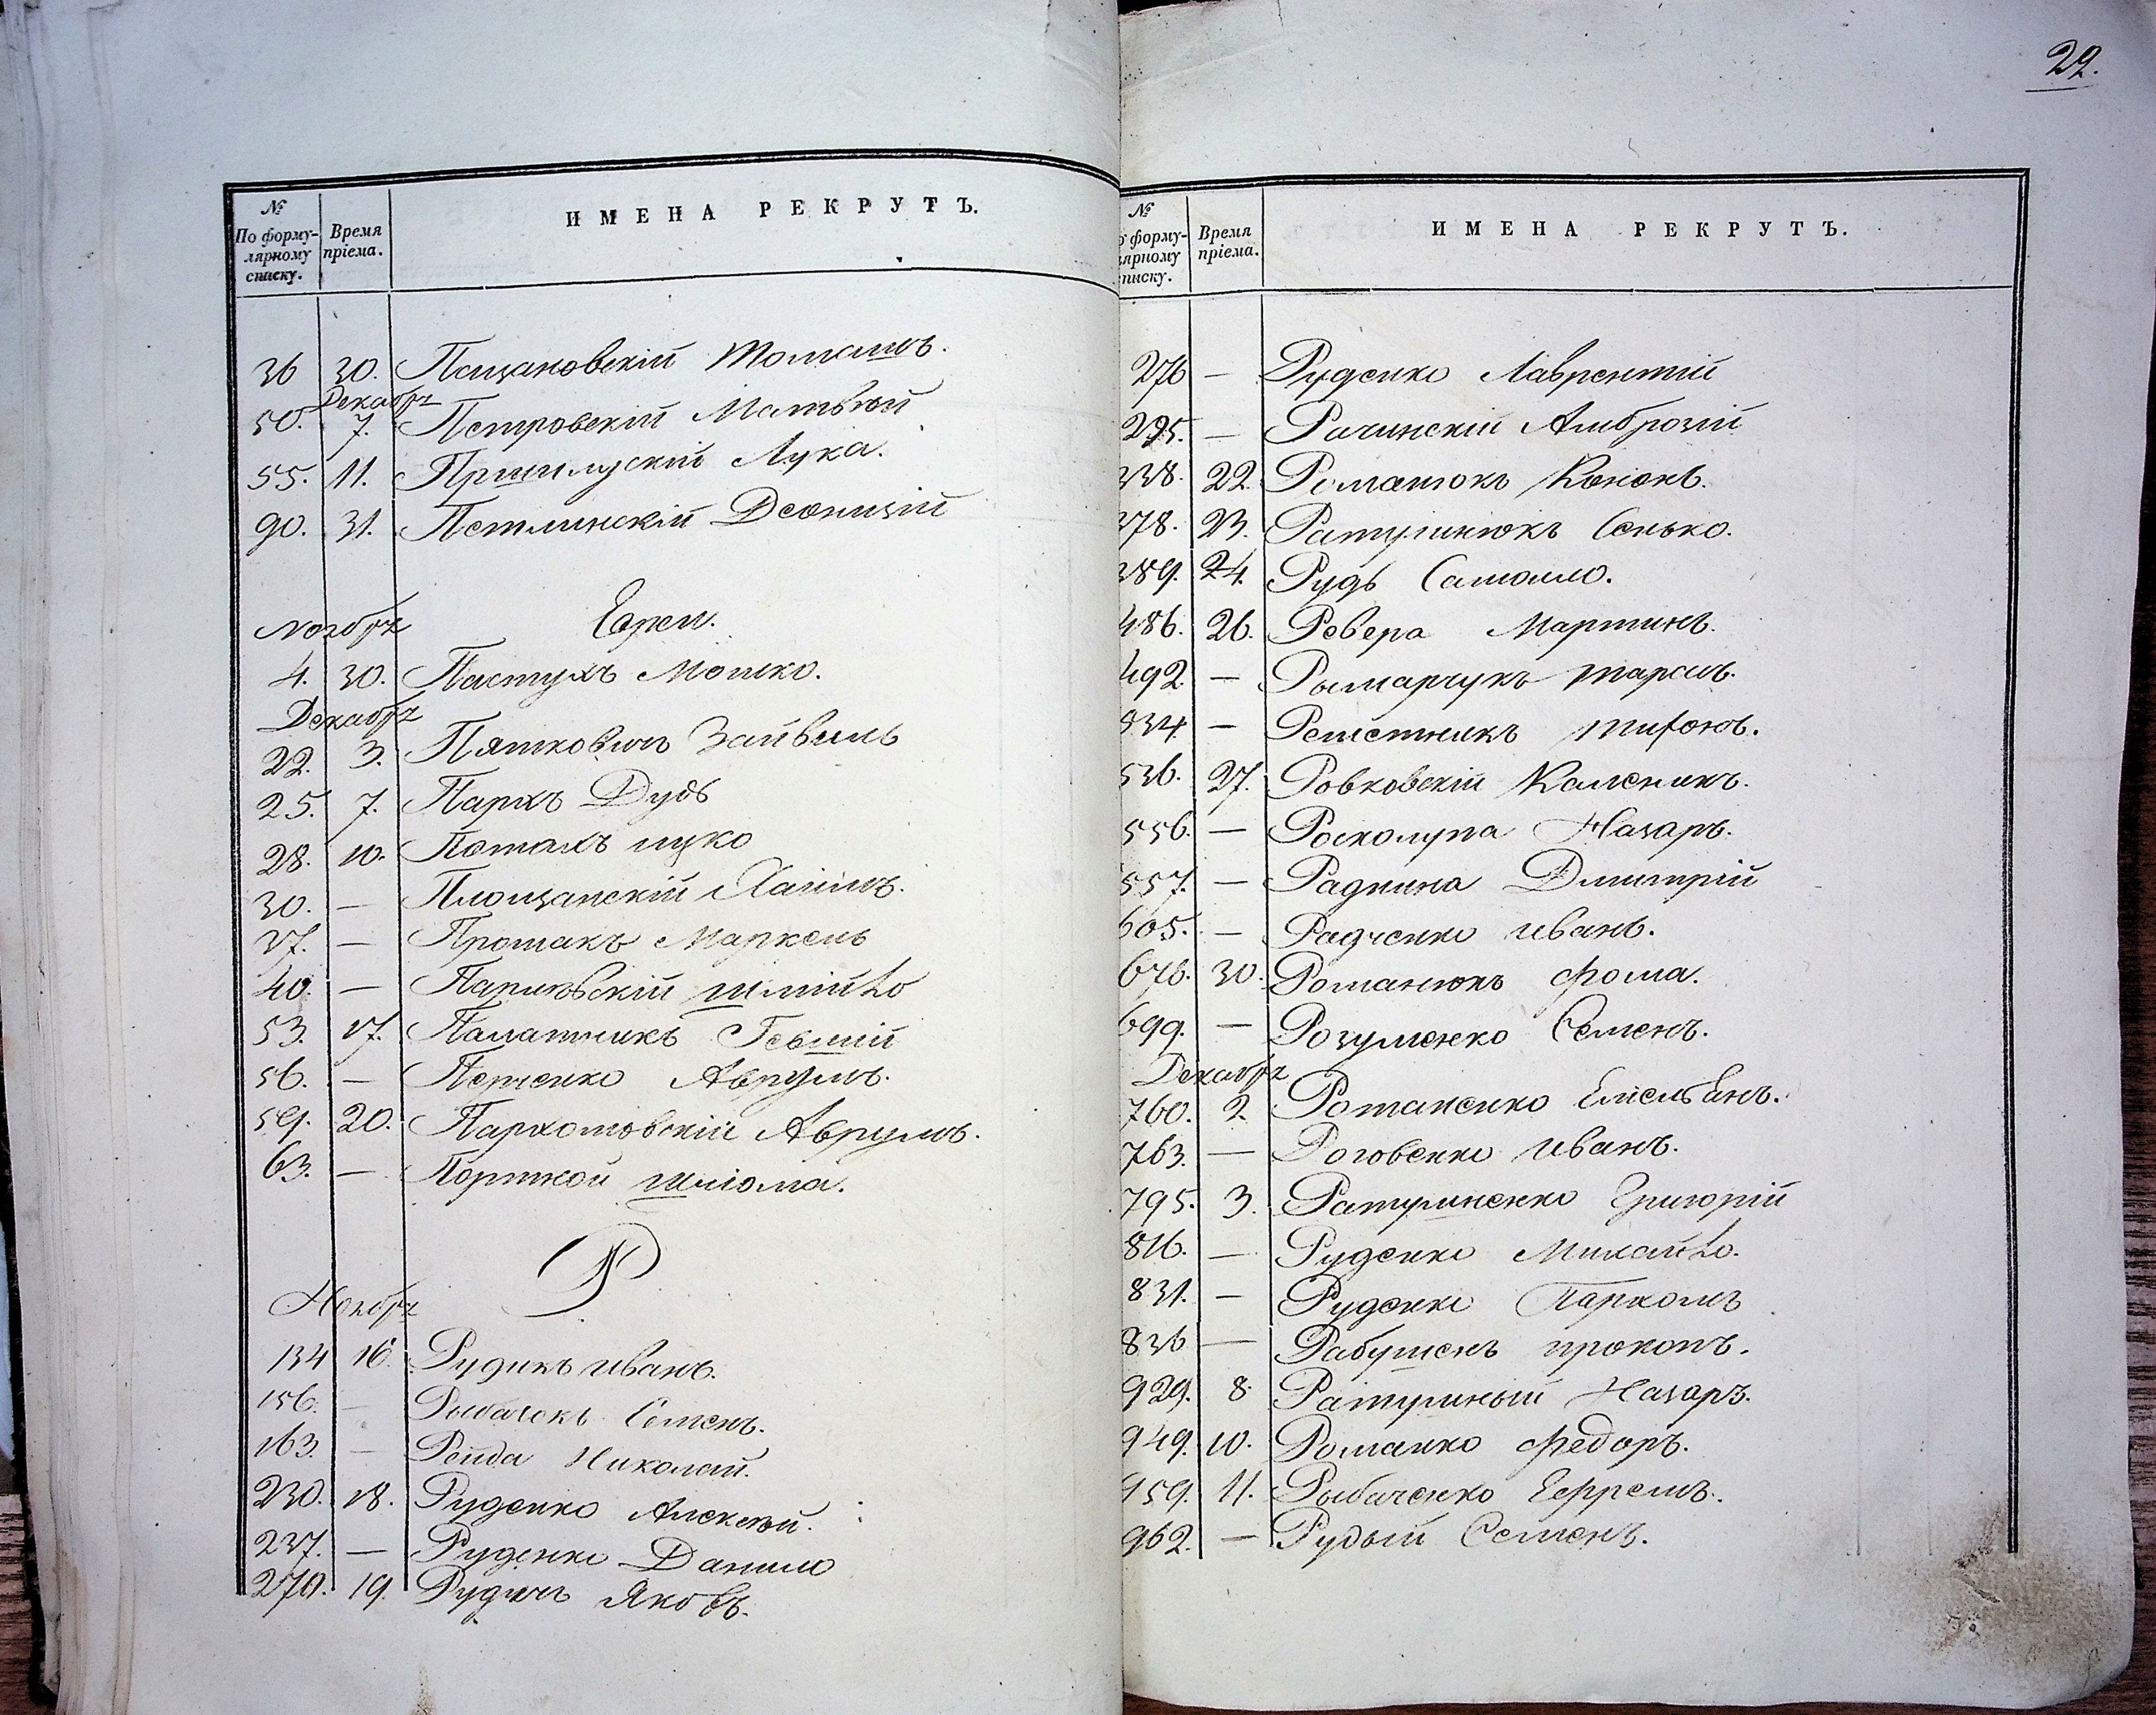 № По формулярному списку. Время пріема. ИМЕНА РЕКРУТЪ.
36 30. Пащановскій Томашъ.
Декабрѧ
50. 7. Петровскій Матвѣй
55. 11. Пршилускій Лука.
90. 31. Петлинскій Деонизій
Ноября Евреи.
4. 30. Пастухъ Мошко.
Декабря
22. 3. Пятковичъ Зайвель
25. 7. Пархъ Дудь
28. 10. Потахъ ицко
30. — Площанскій Хаимъ.
37. — Протакъ Маркель
40. — Париевскій шмійло
53. 17. Палатникъ Гевшій
56. — Петченко Аврумъ.
59. 20. Пархомовскій Аврумъ.
63. — Портной шлома.
Р
Ноября
134 16. Рудикъ иванъ.
156. — Рыбачокъ Семенъ.
163. — Рейда Николай.
230. 18. Руденко Алексѣй.
237. — Руденко Данило
270. 19. Рудичъ Яковъ.
22.
№ По формулярному списку. Время пріема. ИМЕНА РЕКРУТЪ.
276 — Руденко Лаврентій
295. — Рачинскій Амброзій
338. 22. Романюкъ Кононъ.
378. 23. Ратушнюкъ Сенько.
389. 24. Рудь Самойло.
486. 26. Ревера Мартинъ.
492. — Рымарчукъ тарасъ.
534 — Решетникъ тифонъ.
536. 27. Ровковскій Каленикъ.
556. — Росколупа Назаръ.
557. — Раднина Дмитрій
605. — Радченко иванъ.
676. 30. Романюкъ фома.
699. — Розуменко Семенъ.
Декабря
760. 2. Ротаненко Емельянъ.
763. — Роговенко иванъ.
795. 3. Ратушненко Григорій
816. — Руденко Михайло.
831. — Руденко Пархомъ
836 — Рабушенъ прокопъ.
929. 8. Ратушный Назаръ.
949. 10. Романко федоръ.
959. 11. Рыбаченко Ефремъ.
962. — Рудый Семенъ.